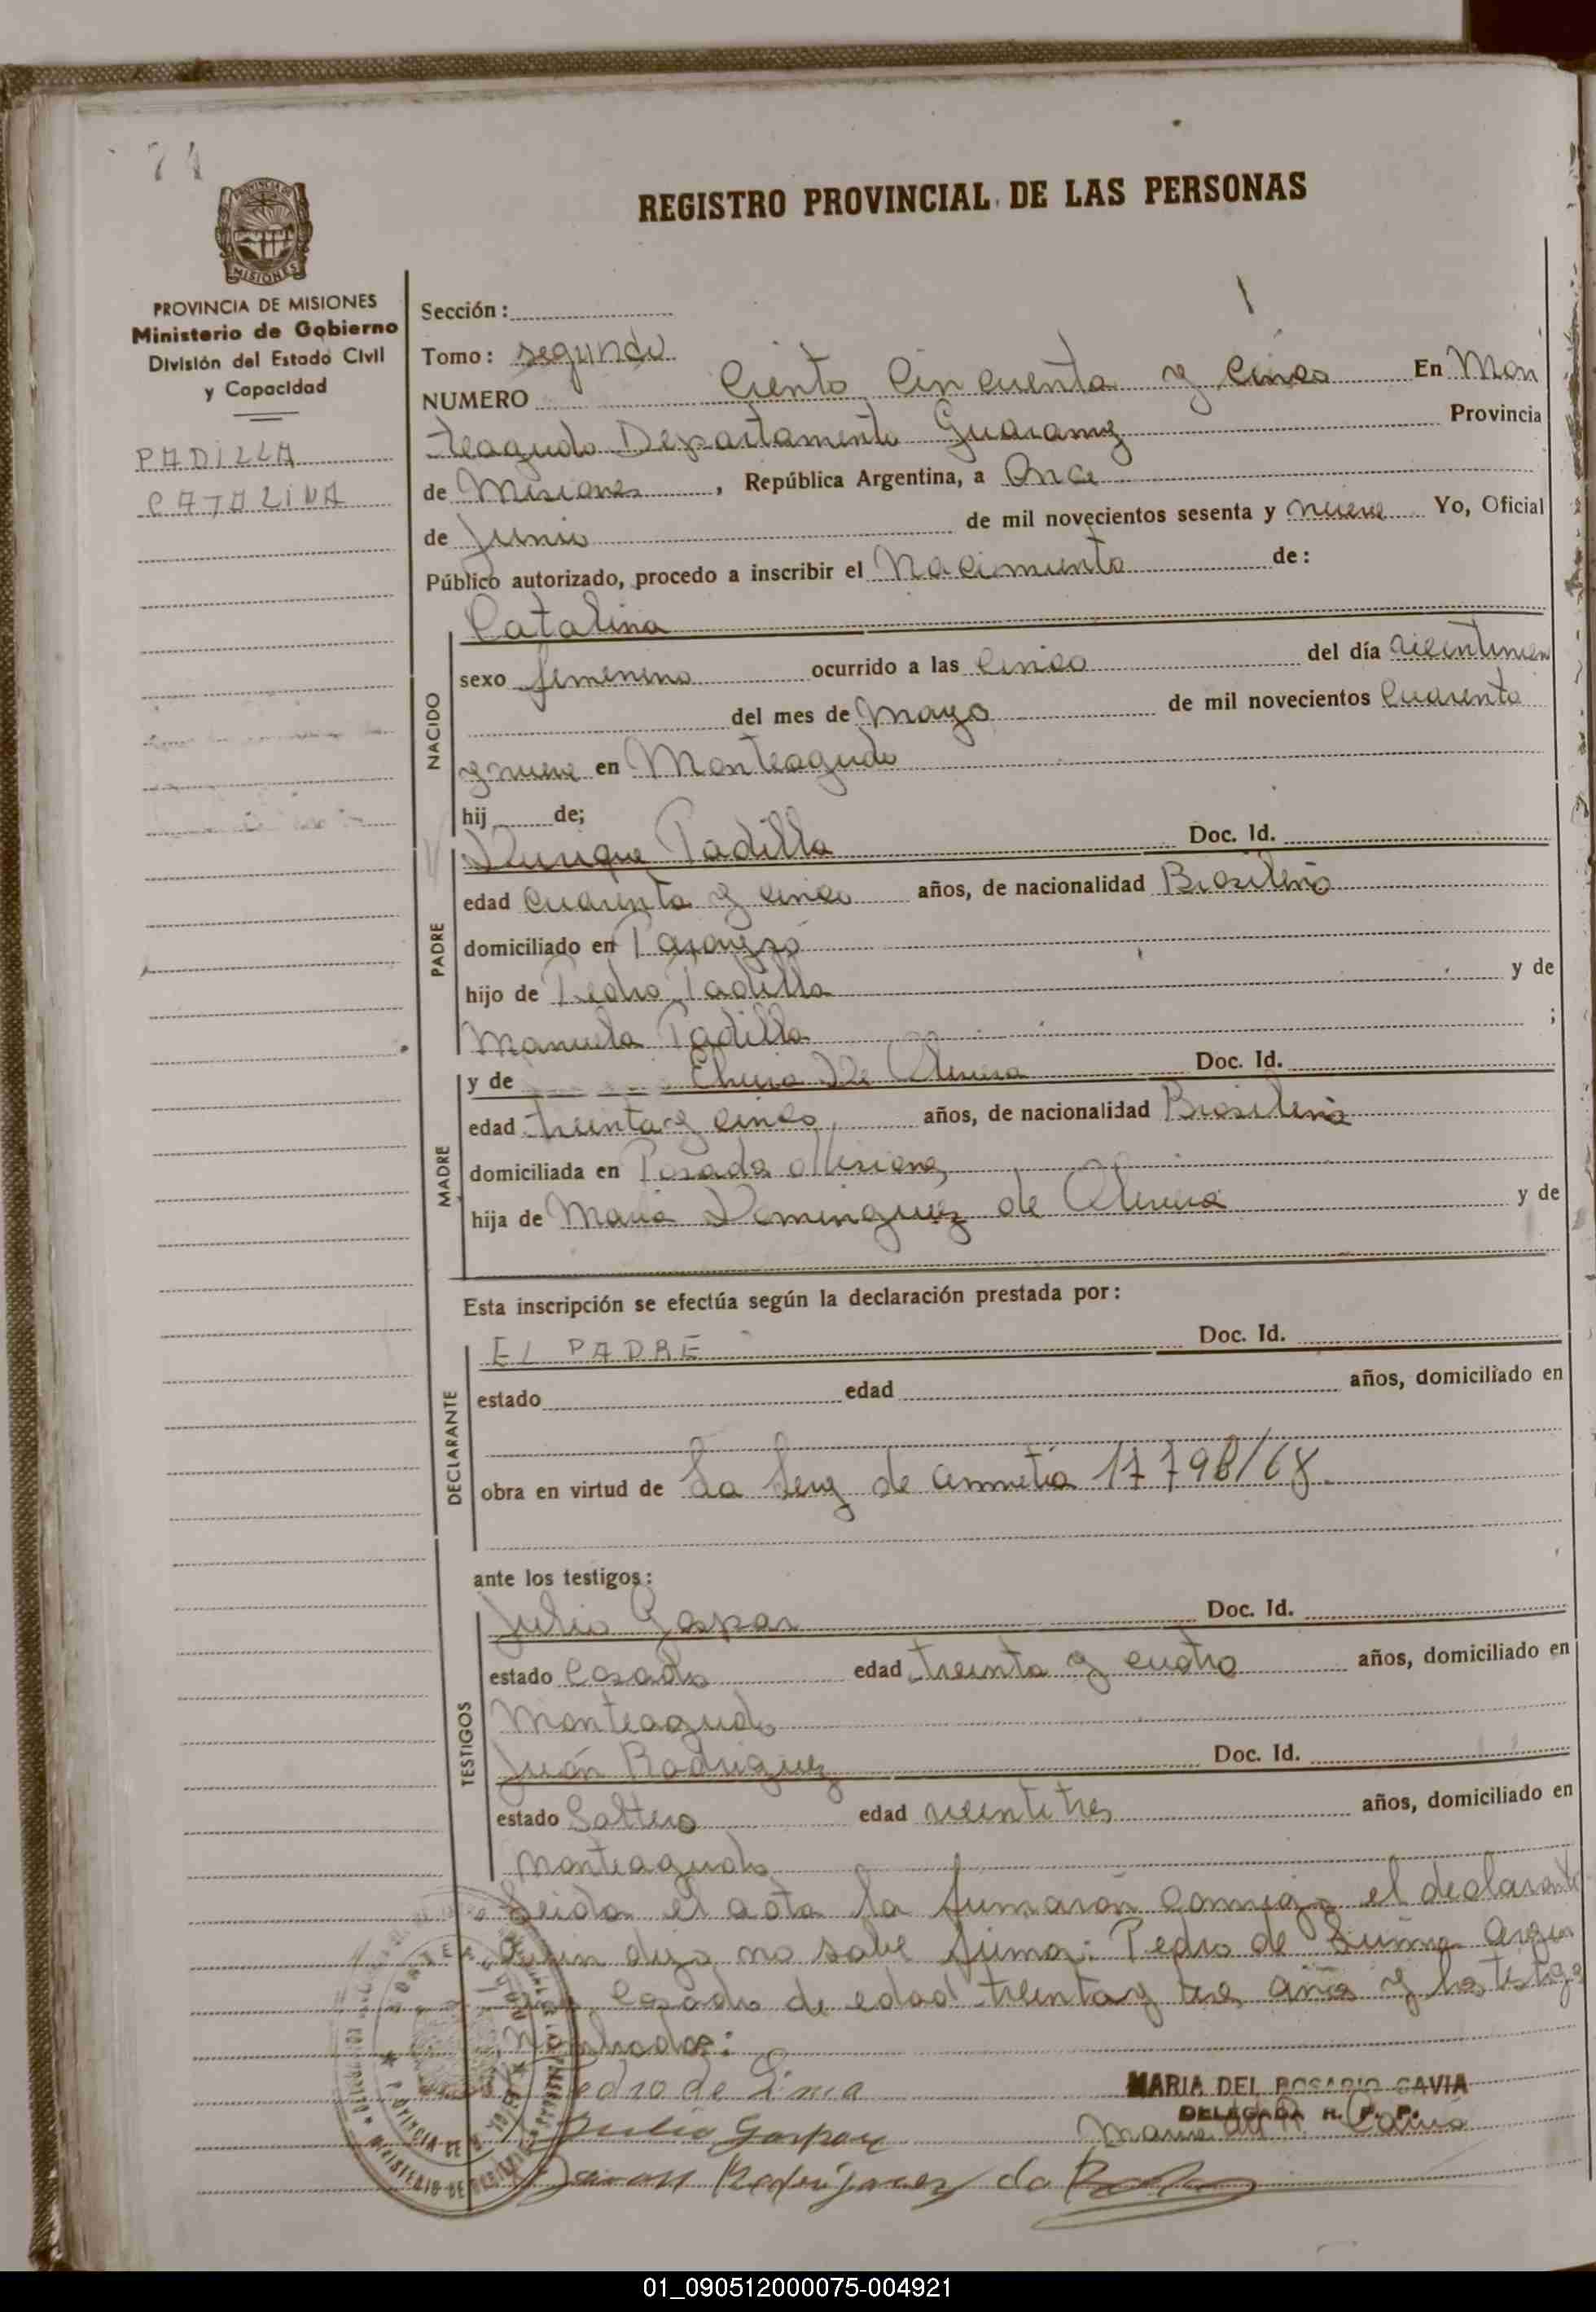 74
REGISTRO PROVINCIAL DE LAS PERSONAS
PROVINCIA DE MISIONES
Ministerio de Gobierno
División del Estado Civil
y Capacidad
PADILLA
CATALINA
Sección:
Tomo: segundo
NUMERO Ciento Cincuenta y Cinco En Mon
teagudo Departamento Guarany Provincia
de Misiones, República Argentina, a Once
de Junio de mil novecientos sesenta y nueve Yo, Oficial
Público autorizado, procedo a inscribir el Nacimiento de:
NACIDO
Catalina
sexo femenino ocurrido a las Cinco del día
del mes de Mayo de mil novecientos Cuarenta
y nueve en Monteagudo
hij de;
PADRE
Padilla Doc. Id.
edad Cuarenta y Cinco años, de nacionalidad Brasileño
domiciliado en
hijo de Pedro Padilla y de
Manuela Padilla ;
MADRE
y de De Oliveira Doc. Id.
edad treinta y cinco años, de nacionalidad Brasileña
domiciliada en Posadas Misiones
hija de Maria Dominguez de Oliveira y de
Esta inscripción se efectúa según la declaración prestada por:
DECLARANTE
EL PADRE Doc. Id.
estado edad años, domiciliado en
obra en virtud de La Ley de amnetia 17798/68.
ante los testigos:
TESTIGOS
Julio Gaspar Doc. Id.
estado Casado edad treinta y cuatro años, domiciliado en
Monteagudo
Juán Rodriguez Doc. Id.
estado Soltero edad veintitres años, domiciliado en
Monteagudo
Leida el acta la firmarón conmigo el declarante
quien dijo no sabe firmar: Pedro de
Casado de edad treinta y tres años y los testigo
Nombrados:
Pedro de Lima
MARIA DEL ROSARIO GAVIA
DELEGADA R. P. P.
Julio Gaspar
Juan Rodriguez da
01_090512000075-004921